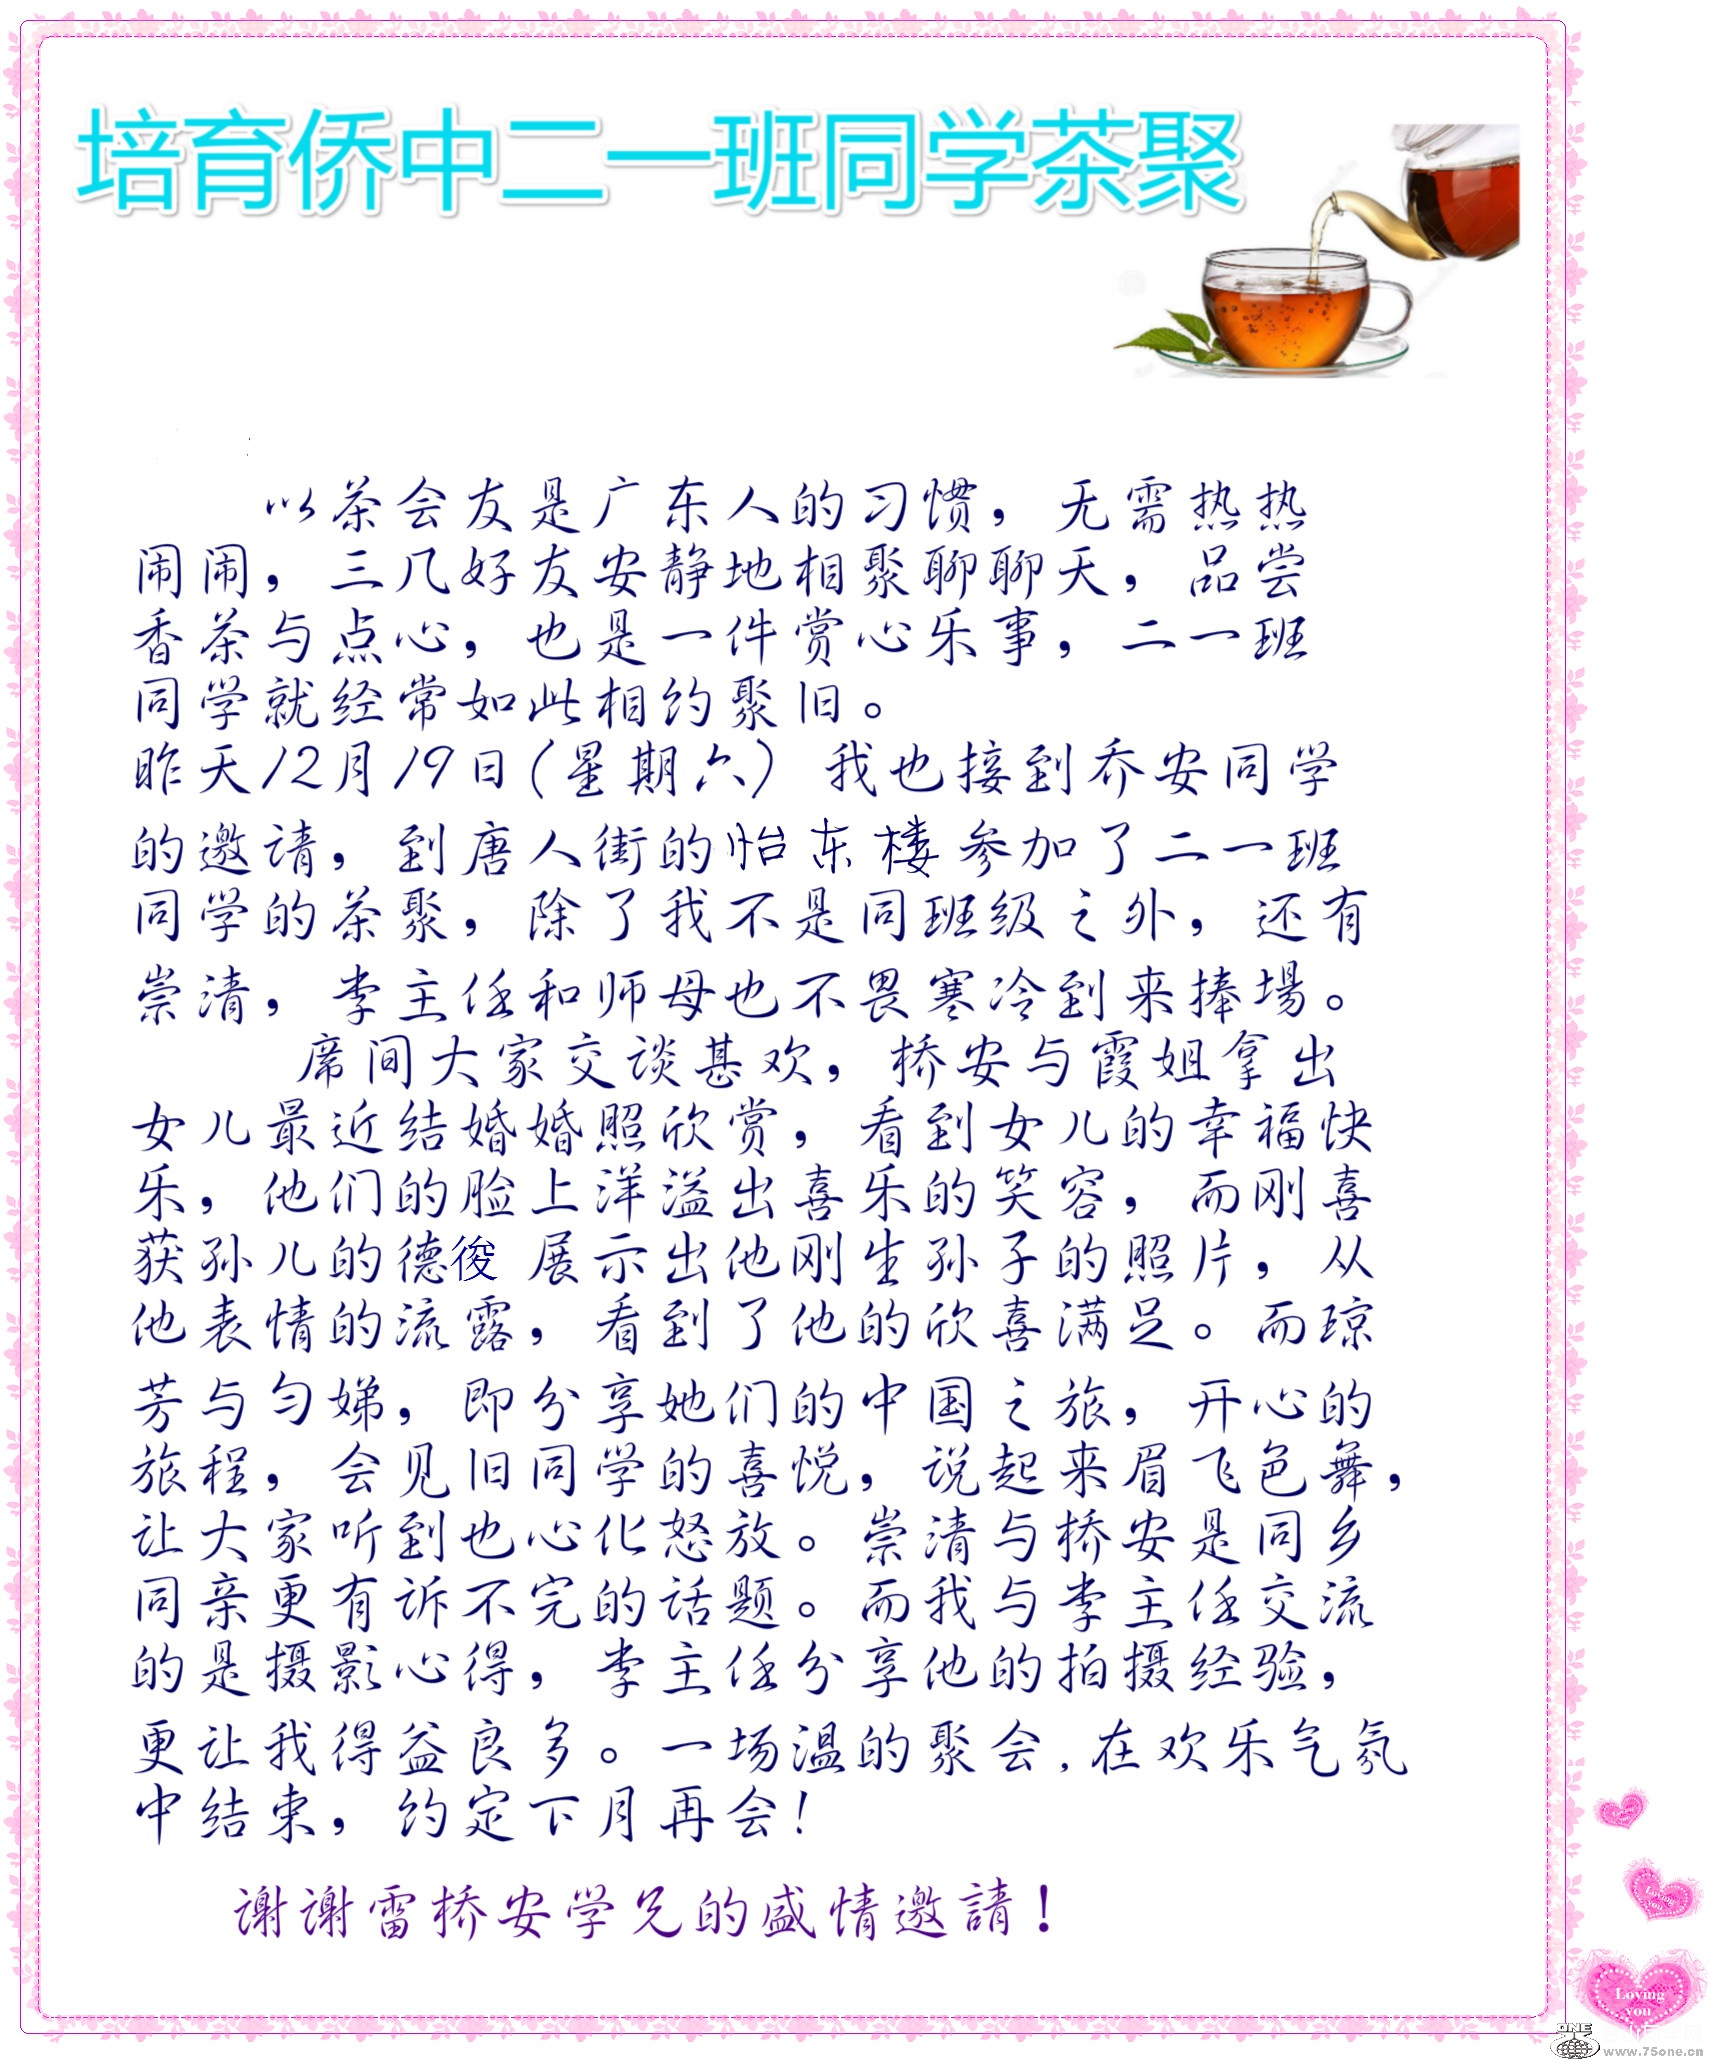 培育侨中二一班同学茶聚
以茶会友是广东人的习惯，无需热热
闹闹，三几好友安静地相聚聊聊天，品尝
香茶与点心，也是一件赏心乐事，二一班
同学就经常如此相约聚旧。
昨天12月19日(星期六) 我也接到乔安同学
的邀请，到唐人街的怡东楼参加了二一班
同学的茶聚，除了我不是同班级之外，还有
崇清，李主任和师母也不畏寒冷到来捧場。
席间大家交谈甚欢，桥安与霞姐拿出
女儿最近结婚婚照欣赏，看到女儿的幸福快
乐，他们的脸上洋溢出喜乐的笑容，而刚喜
获孙儿的德俊 展示出他刚生孙子的照片，从
他表情的流露，看到了他的欣喜满足。而琼
芳与匀娣，即分享她们的中国之旅，开心的
旅程，会见旧同学的喜悦，说起来眉飞色舞，
让大家听到也心化怒放。崇清与桥安是同乡
同亲更有诉不完的话题。而我与李主任交流
的是摄影心得，李主任分享他的拍摄经验，
更让我得益良多。一场温的聚会,在欢乐气氛
中结束，约定下月再会!
谢谢雷桥安学兄的盛情邀請!
Loving you
Loving you
ONE
www.75one.cn